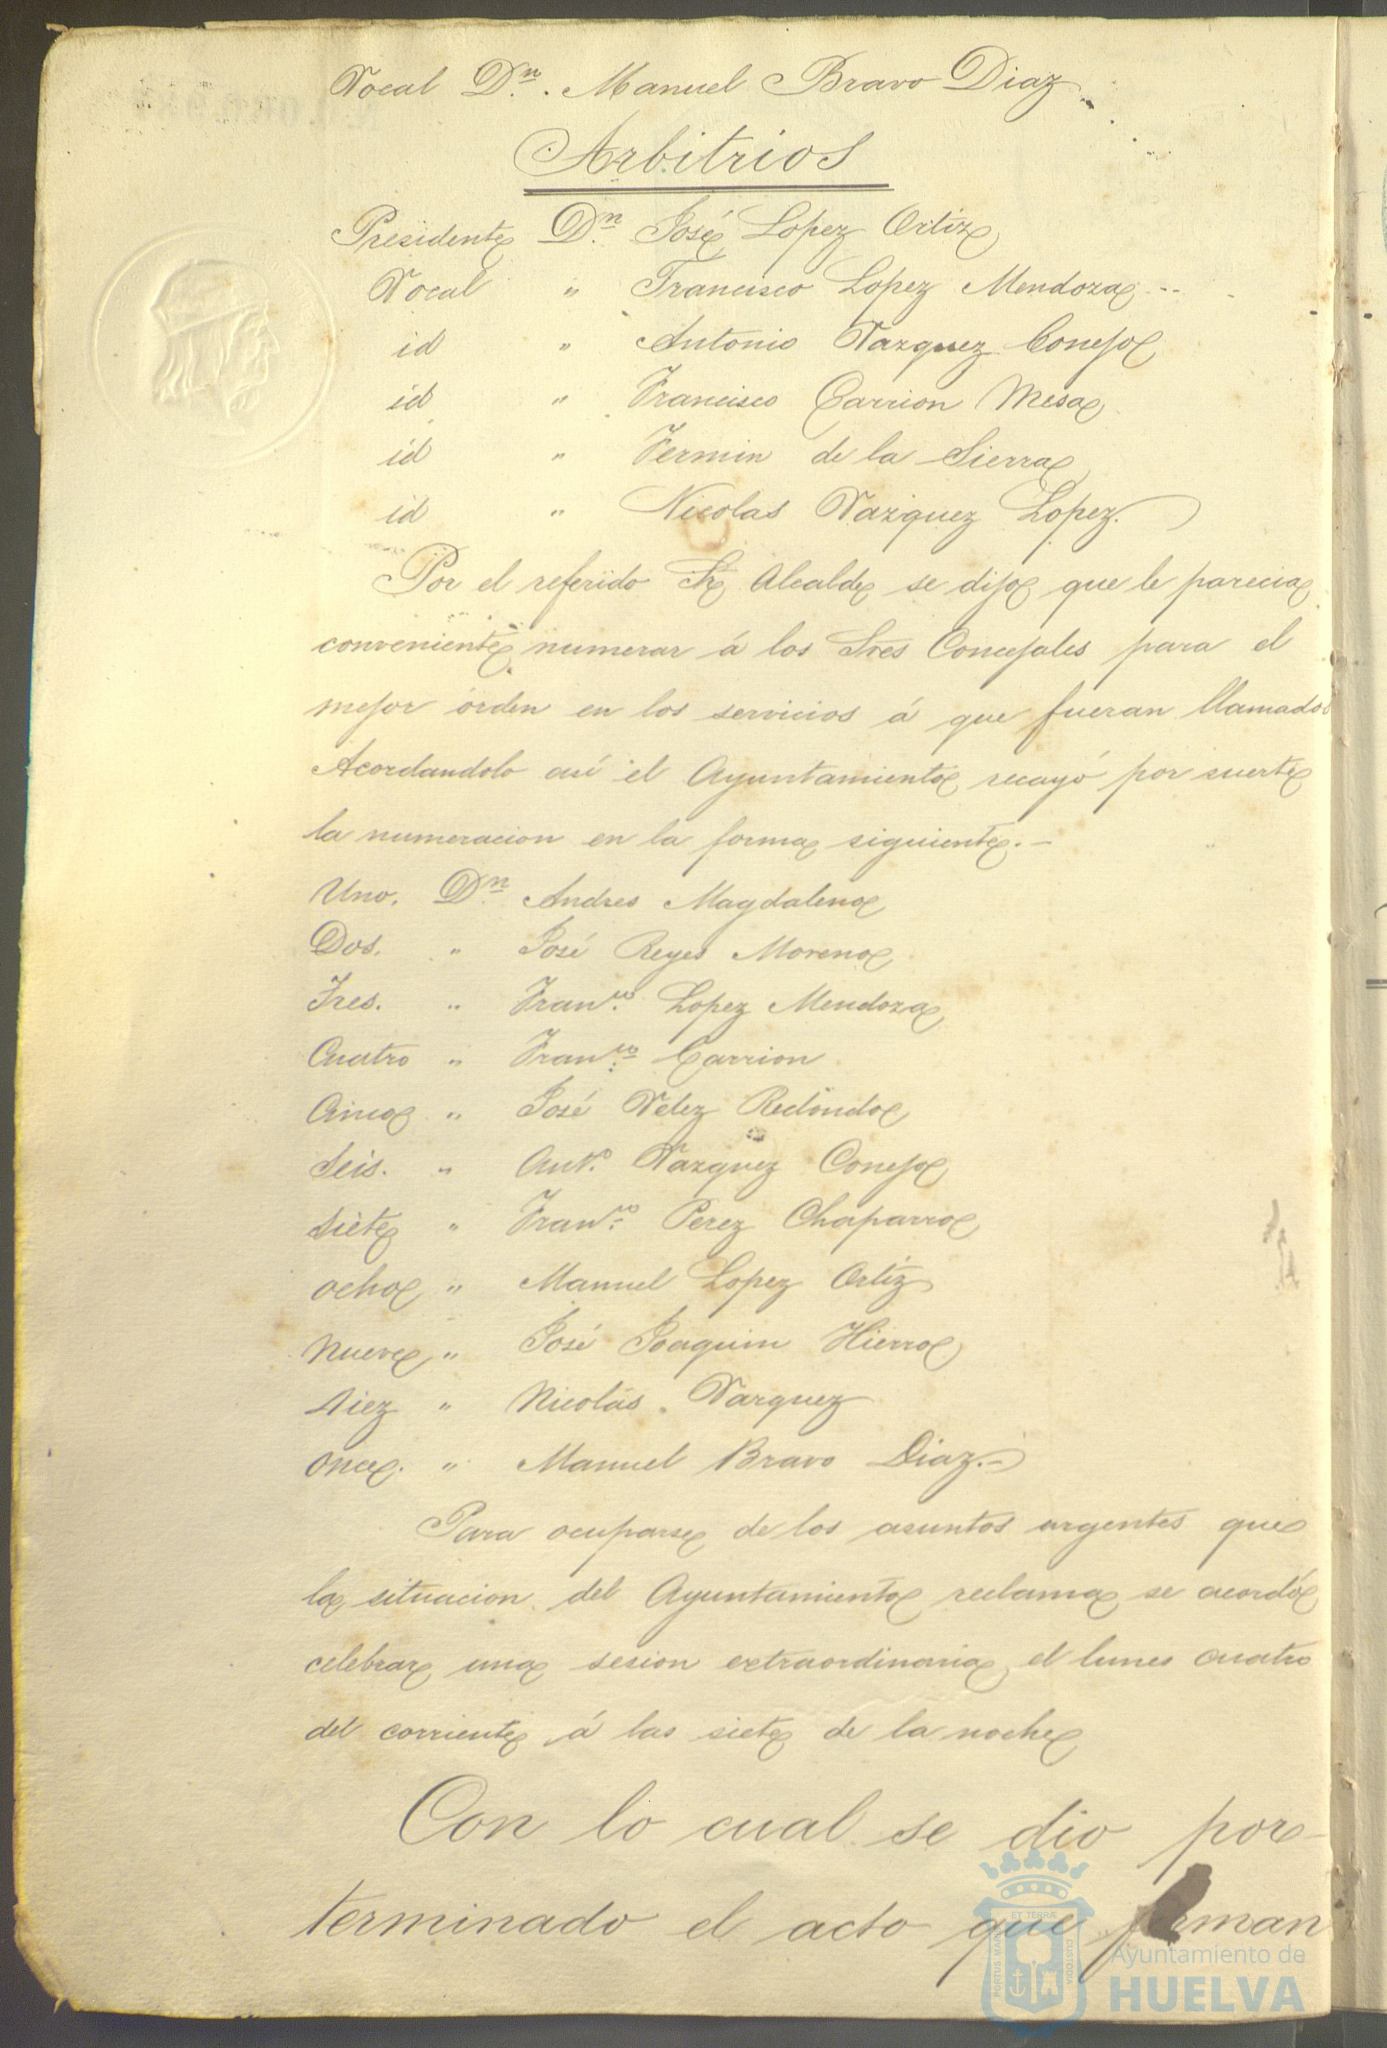 Vocal Dn. Manuel Bravo Diaz
Arbitrios
Presidente Dn. José Lopez Ortiz
Vocal " Francisco Lopez Mendoza --
id " Antonio Vazquez Conejo
id " Francisco Carrion Mesa
id " Fermin de la Sierra
id " Nicolas Vazquez Lopez.
Por el referido Sr Alcalde se dijo que le parecia
conveniente numerar á los Sres Concejales para el
mejor órden en los servicios á que fueran llamados
Acordandolo así el Ayuntamiento recayó por suerte
la numeracion en la forma siguiente. -
Uno. Dn. Andres Magdaleno
Dos. " José Reyes Moreno
Tres. " Franco. Lopez Mendoza
Cuatro " Franco. Carrion
Cinco " José Velez Redondo
Seis. " Anto. Vazquez Conejo
Siete " Franco. Perez Chaparro
ocho " Manuel Lopez Ortiz
Nueve " José Joaquin Hierro
Diez " Nicolás Vazquez
Once. " Manuel Bravo Diaz. -
Para ocuparse de los asuntos urgentes que
la situacion del Ayuntamiento reclama se acordó
celebrar una sesion extraordinaria el lunes cuatro
del corriente á las siete de la noche
Con lo cual se dio por
terminado el acto que firman
ET TERRÆ
PORTUS MARIS
CUSTODIA
Ayuntamiento de
HUELVA